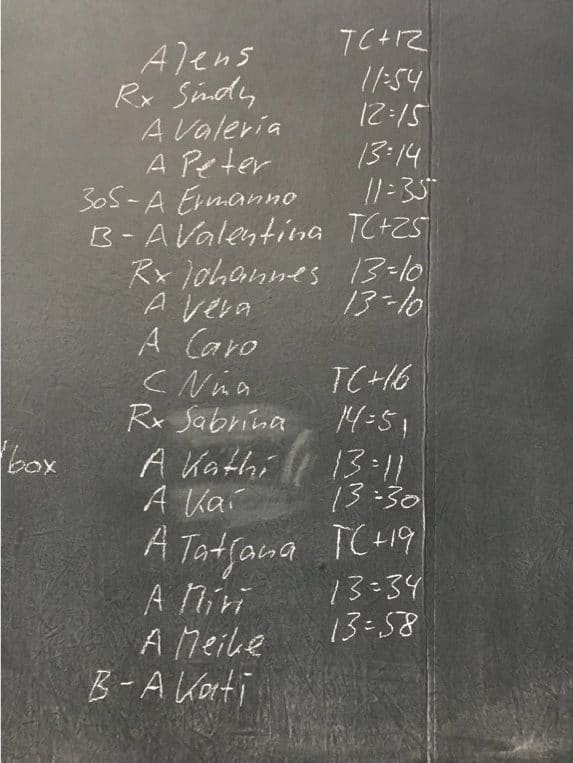 A Jens TC+12
Rx Sindy 11:54
A Valeria 12:15
A Peter 13:14
30S-A Ermanno 11:35
B-A Valentina TC+25
Rx Johannes 13:10
A Vera 13:10
A Caro
C Nina TC+16
Rx Sabrina 14:51
box A Kathi 13:11
A Kai 13:30
A Tatjana TC+19
A Miri 13:34
A Meike 13:58
B-A Kati